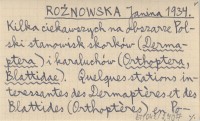 ROŻNOWSKA Janina 1934.
Kilka ciekawszych na obszarze Pol-
ski stanowisk skorków (Derma-
ptera) i karaluchów (Orthoptera,
Blattidae). Quelques stations in-
teressantes des Dermaptères et des
Blattides (Orthoptères) en Po-